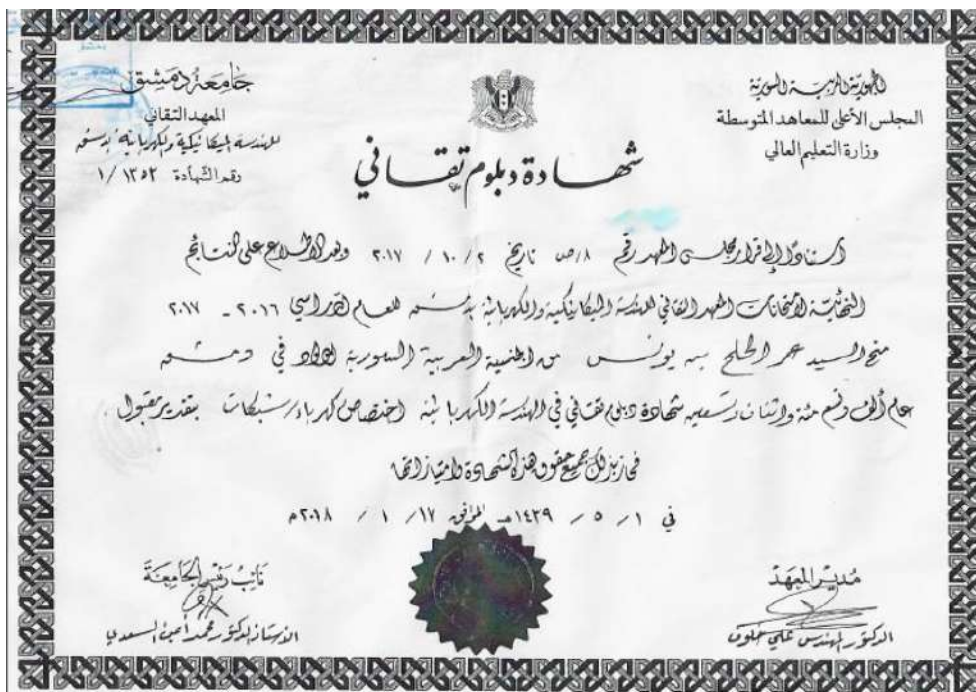 الجمهورية العربية السورية
المجلس الأعلى للمعاهد المتوسطة
وزارة التعليم العالي
جامعة دمشق
المعهد التقاني
للهندسة الميكانيكية والكهربائية بدمشق
رقم الشهادة ١٣٥٢ / ١
شهادة دبلوم تقاني
استناداً إلى قرار مجلس المعهد رقم ٨/ص تاريخ ٢ / ١٠ / ٢٠١٧ وبعد الاطلاع على النتائج
النهائية لامتحانات المعهد التقاني للهندسة الميكانيكية والكهربائية بدمشق للعام الدراسي ٢٠١٦ - ٢٠١٧
منح السيد عمر الحلح بن يونس من الجنسية العربية السورية المولود في دمشق
عام ألف وتسع مئة واثنان وتسعين شهادة دبلوم تقاني في الهندسة الكهربائية اختصاص كهرباء/شبكات بتقدير مقبول
فحاز بذلك جميع حقوق هذه الشهادة وامتيازاتها
في ١ / ٥ / ١٤٣٩هـ الموافق ١٧ / ١ / ٢٠١٨م
مدير المعهد
الدكتور المهندس علي خلوف
نائب رئيس الجامعة
الأستاذ الدكتور محمد أمين السعدي